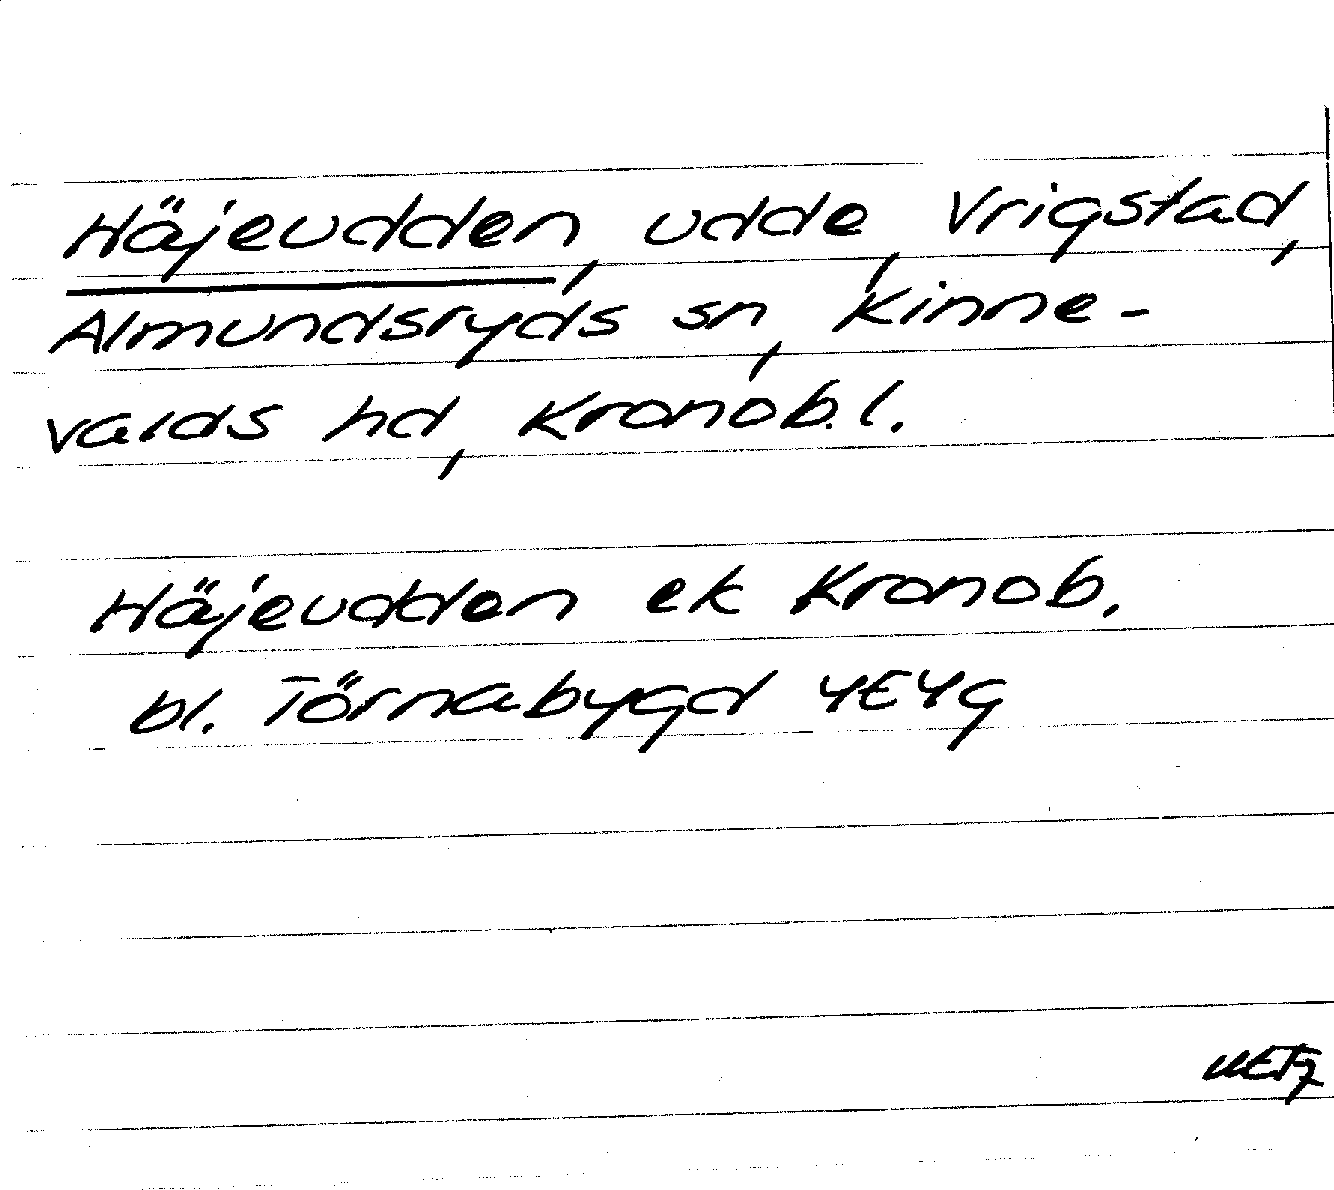 Häjeudden, udde, Vrigstad,
Almundsryds sn, Kinne-
valds hd, Kronob. l.
Häjeudden ek Kronob.
bl. Törnabygd 4E4g